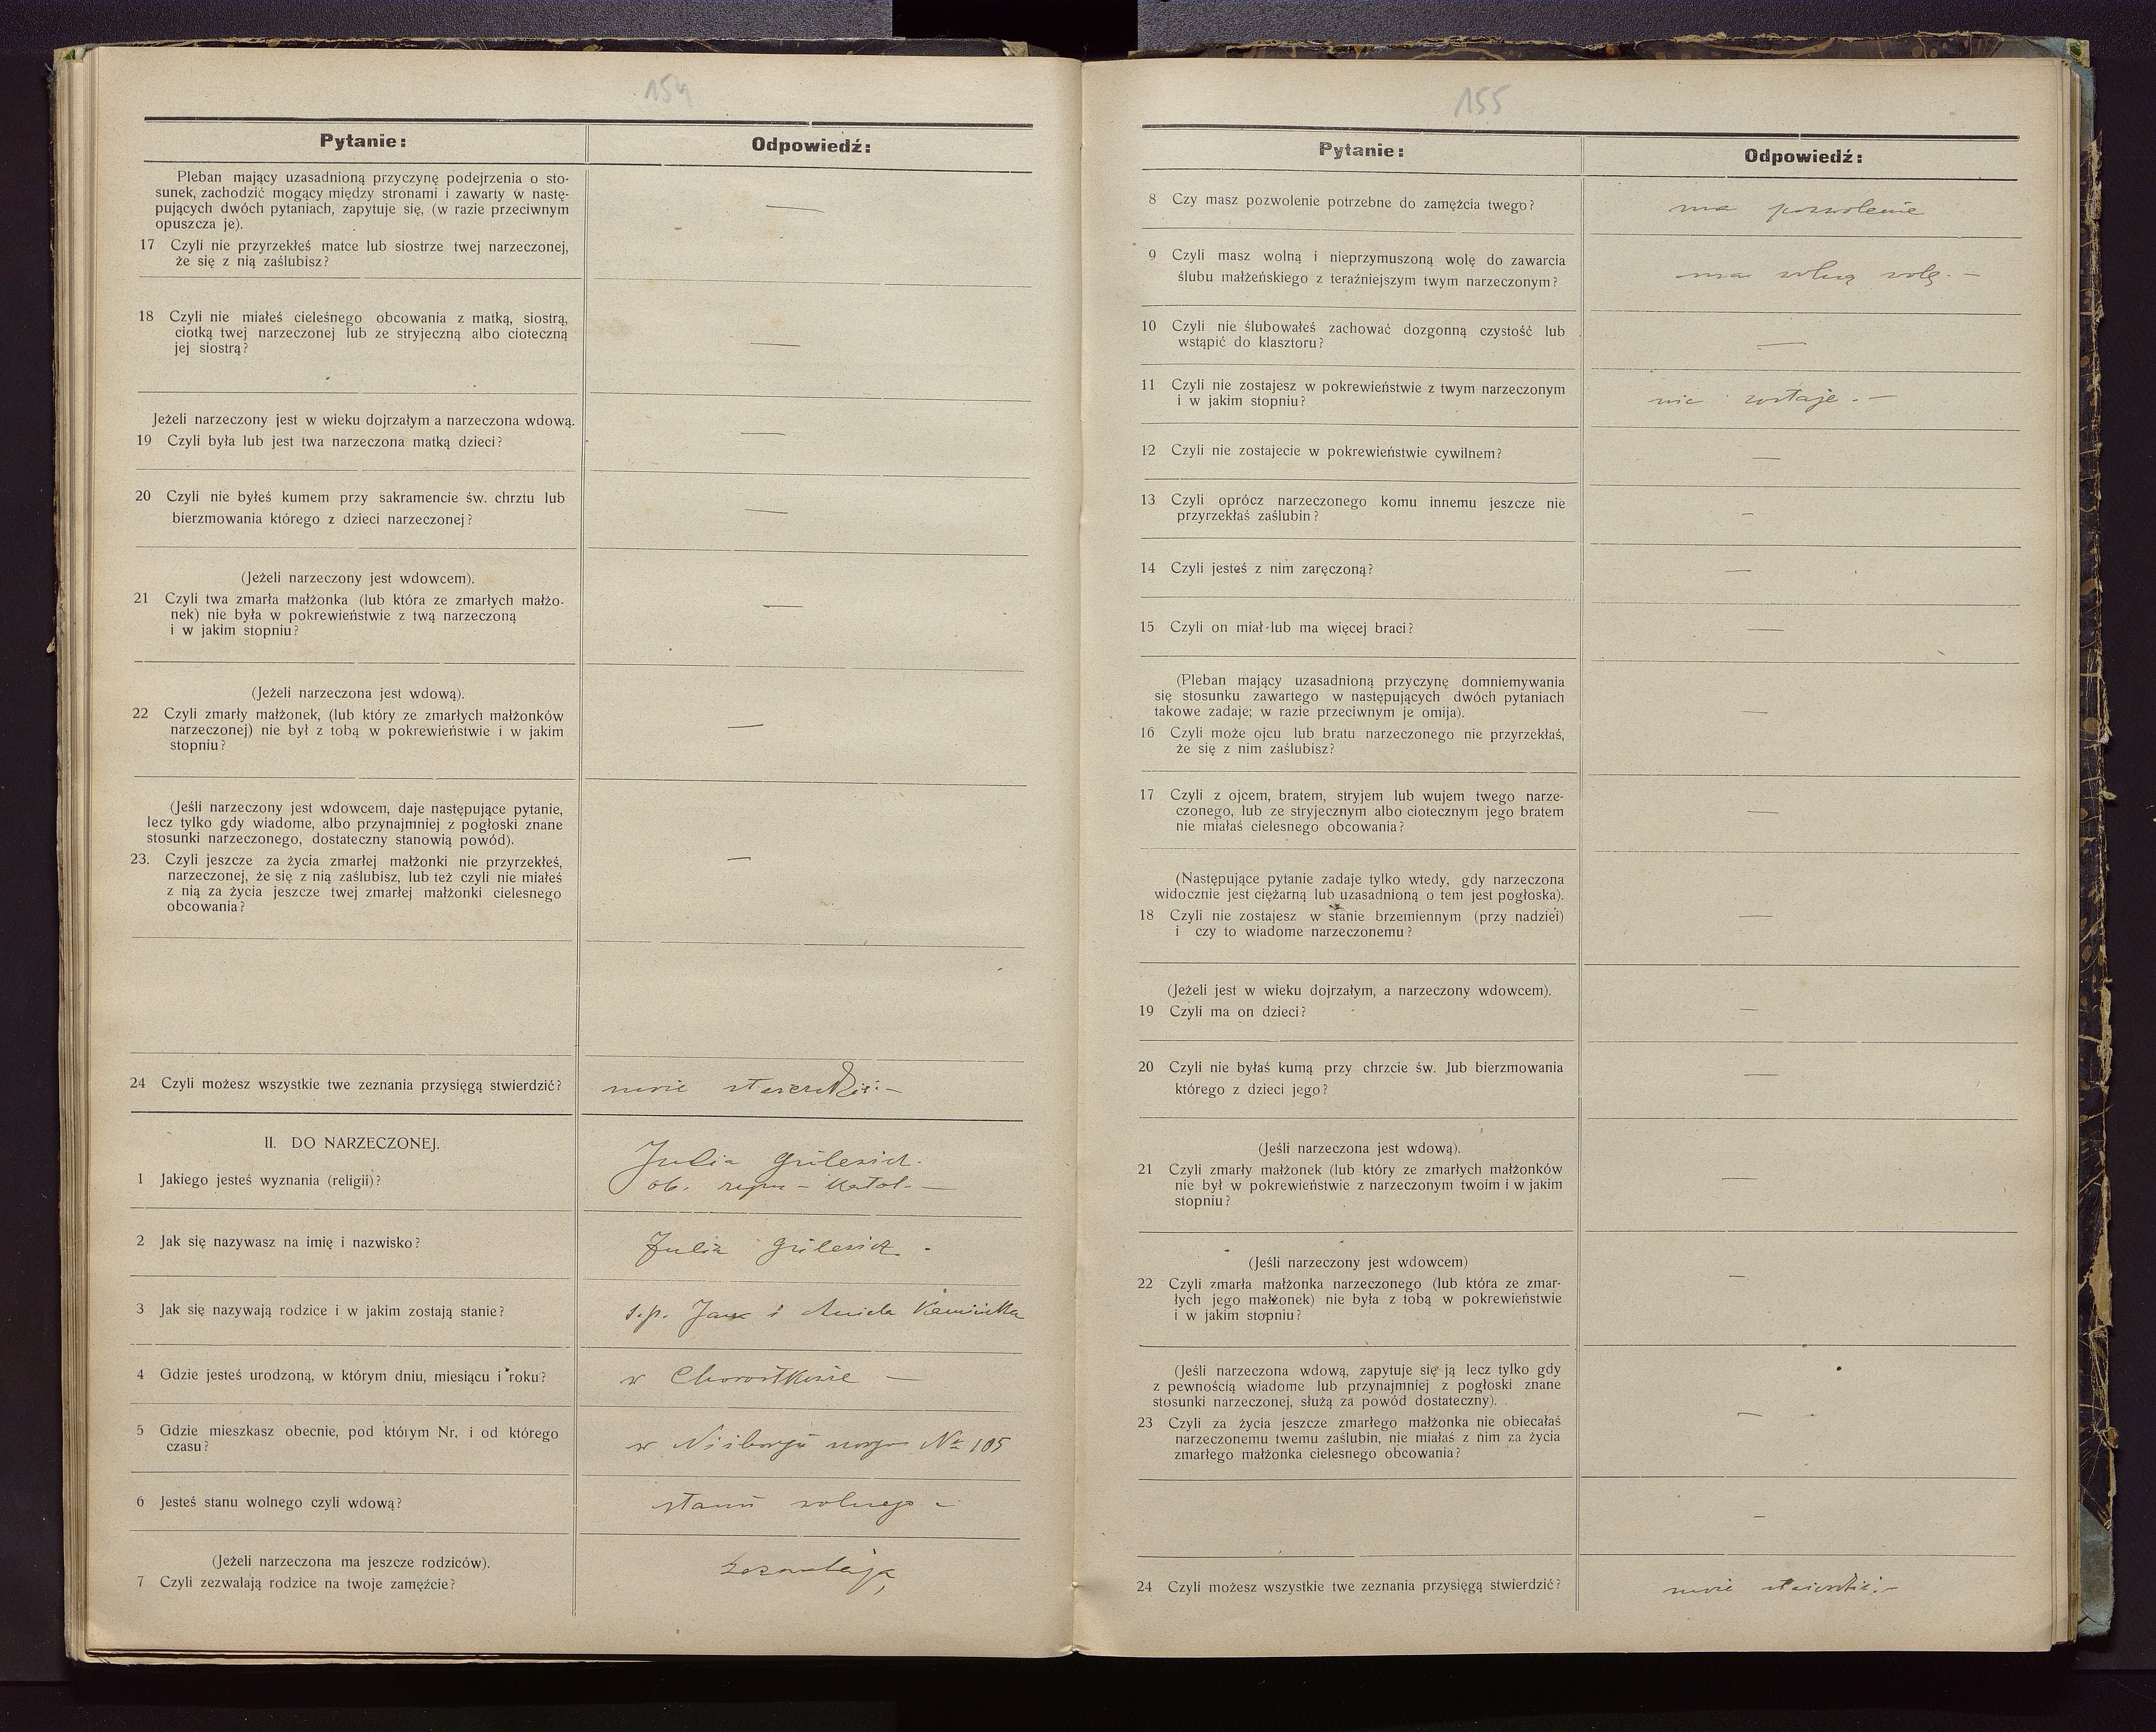 154
Pytanie:
Odpowiedź:
Pleban mający uzasadnioną przyczynę podejrzenia o sto-
sunek, zachodzić mogący między stronami i zawarty w nastę-
pujących dwóch pytaniach, zapytuje się, (w razie przeciwnym
opuszcza je).
—
17 Czyli nie przyrzekłeś matce lub siostrze twej narzeczonej,
że się z nią zaślubisz?
18 Czyli nie miałeś cieleśnego obcowania z matką, siostrą,
ciotką twej narzeczonej lub ze stryjeczną albo cioteczną
jej siostrą?
—
Jeżeli narzeczony jest w wieku dojrzałym a narzeczona wdową.
19 Czyli była lub jest twa narzeczona matką dzieci?
—
20 Czyli nie byłeś kumem przy sakramencie św. chrztu lub
bierzmowania którego z dzieci narzeczonej?
—
(Jeżeli narzeczony jest wdowcem).
21 Czyli twa zmarła małżonka (lub która ze zmarłych małżo-
nek) nie była w pokrewieństwie z twą narzeczoną
i w jakim stopniu?
—
(Jeżeli narzeczona jest wdową).
22 Czyli zmarły małżonek, (lub który ze zmarłych małżonków
narzeczonej) nie był z tobą w pokrewieństwie i w jakim
stopniu?
—
(Jeśli narzeczony jest wdowcem, daje następujące pytanie,
lecz tylko gdy wiadome, albo przynajmniej z pogłoski znane
stosunki narzeczonego, dostateczny stanowią powód).
23. Czyli jeszcze za życia zmarłej małżonki nie przyrzekłeś,
narzeczonej, że się z nią zaślubisz, lub też czyli nie miałeś
z nią za życia jeszcze twej zmarłej małżonki cielesnego
obcowania?
—
24 Czyli możesz wszystkie twe zeznania przysięgą stwierdzić?
może stwierdzić. —
II. DO NARZECZONEJ.
Julia
1 Jakiego jesteś wyznania (religii)?
ob. rzym - katol. —
2 Jak się nazywasz na imię i nazwisko?
Julia
3 Jak się nazywają rodzice i w jakim zostają stanie?
ś.p. Jan i Aniela Kamińska
4 Gdzie jesteś urodzoną, w którym dniu, miesiącu i roku?
w Chorostkowie —
5 Gdzie mieszkasz obecnie, pod którym Nr. i od którego
czasu?
w Niżborgu nowym № 105
6 Jesteś stanu wolnego czyli wdową?
stanu wolnego —
(Jeżeli narzeczona ma jeszcze rodziców).
7 Czyli zezwalają rodzice na twoje zamężcie?
zezwalają
155
Pytanie:
Odpowiedź:
8 Czy masz pozwolenie potrzebne do zamężcia twego?
ma pozwolenie
9 Czyli masz wolną i nieprzymuszoną wolę do zawarcia
ślubu małżeńskiego z teraźniejszym twym narzeczonym?
ma wolną wolę. —
10 Czyli nie ślubowałeś zachować dozgonną czystość lub
wstąpić do klasztoru?
—
11 Czyli nie zostajesz w pokrewieństwie z twym narzeczonym
i w jakim stopniu?
nie zostaje. —
12 Czyli nie zostajecie w pokrewieństwie cywilnem?
—
13 Czyli oprócz narzeczonego komu innemu jeszcze nie
przyrzekłaś zaślubin?
—
14 Czyli jesteś z nim zaręczoną?
—
15 Czyli on miał lub ma więcej braci?
—
(Pleban mający uzasadnioną przyczynę domniemywania
się stosunku zawartego w następujących dwóch pytaniach
takowe zadaje; w razie przeciwnym je omija).
—
16 Czyli może ojcu lub bratu narzeczonego nie przyrzekłaś,
że się z nim zaślubisz?
17 Czyli z ojcem, bratem, stryjem lub wujem twego narze-
czonego, lub ze stryjecznym albo ciotecznym jego bratem
nie miałaś cielesnego obcowania?
—
(Następujące pytanie zadaje tylko wtedy, gdy narzeczona
widocznie jest ciężarną lub uzasadnioną o tem jest pogłoska).
18 Czyli nie zostajesz w stanie brzemiennym (przy nadziei)
i czy to wiadome narzeczonemu?
—
(Jeżeli jest w wieku dojrzałym, a narzeczony wdowcem).
19 Czyli ma on dzieci?
—
20 Czyli nie byłaś kumą przy chrzcie św. lub bierzmowania
którego z dzieci jego?
—
(Jeśli narzeczona jest wdową).
21 Czyli zmarły małżonek (lub który ze zmarłych małżonków
nie był w pokrewieństwie z narzeczonym twoim i w jakim
stopniu?
—
(Jeśli narzeczony jest wdowcem)
22 Czyli zmarła małżonka narzeczonego (lub która ze zmar-
łych jego małżonek) nie była z tobą w pokrewieństwie
i w jakim stopniu?
—
(Jeśli narzeczona wdową, zapytuje się ją lecz tylko gdy
z pewnością wiadome lub przynajmniej z pogłoski znane
stosunki narzeczonej, służą za powód dostateczny).
23 Czyli za życia jeszcze zmarłego małżonka nie obiecałaś
narzeczonemu twemu zaślubin, nie miałaś z nim za życia
zmarłego małżonka cielesnego obcowania?
—
—
24 Czyli możesz wszystkie twe zeznania przysięgą stwierdzić?
może stwierdzić. —